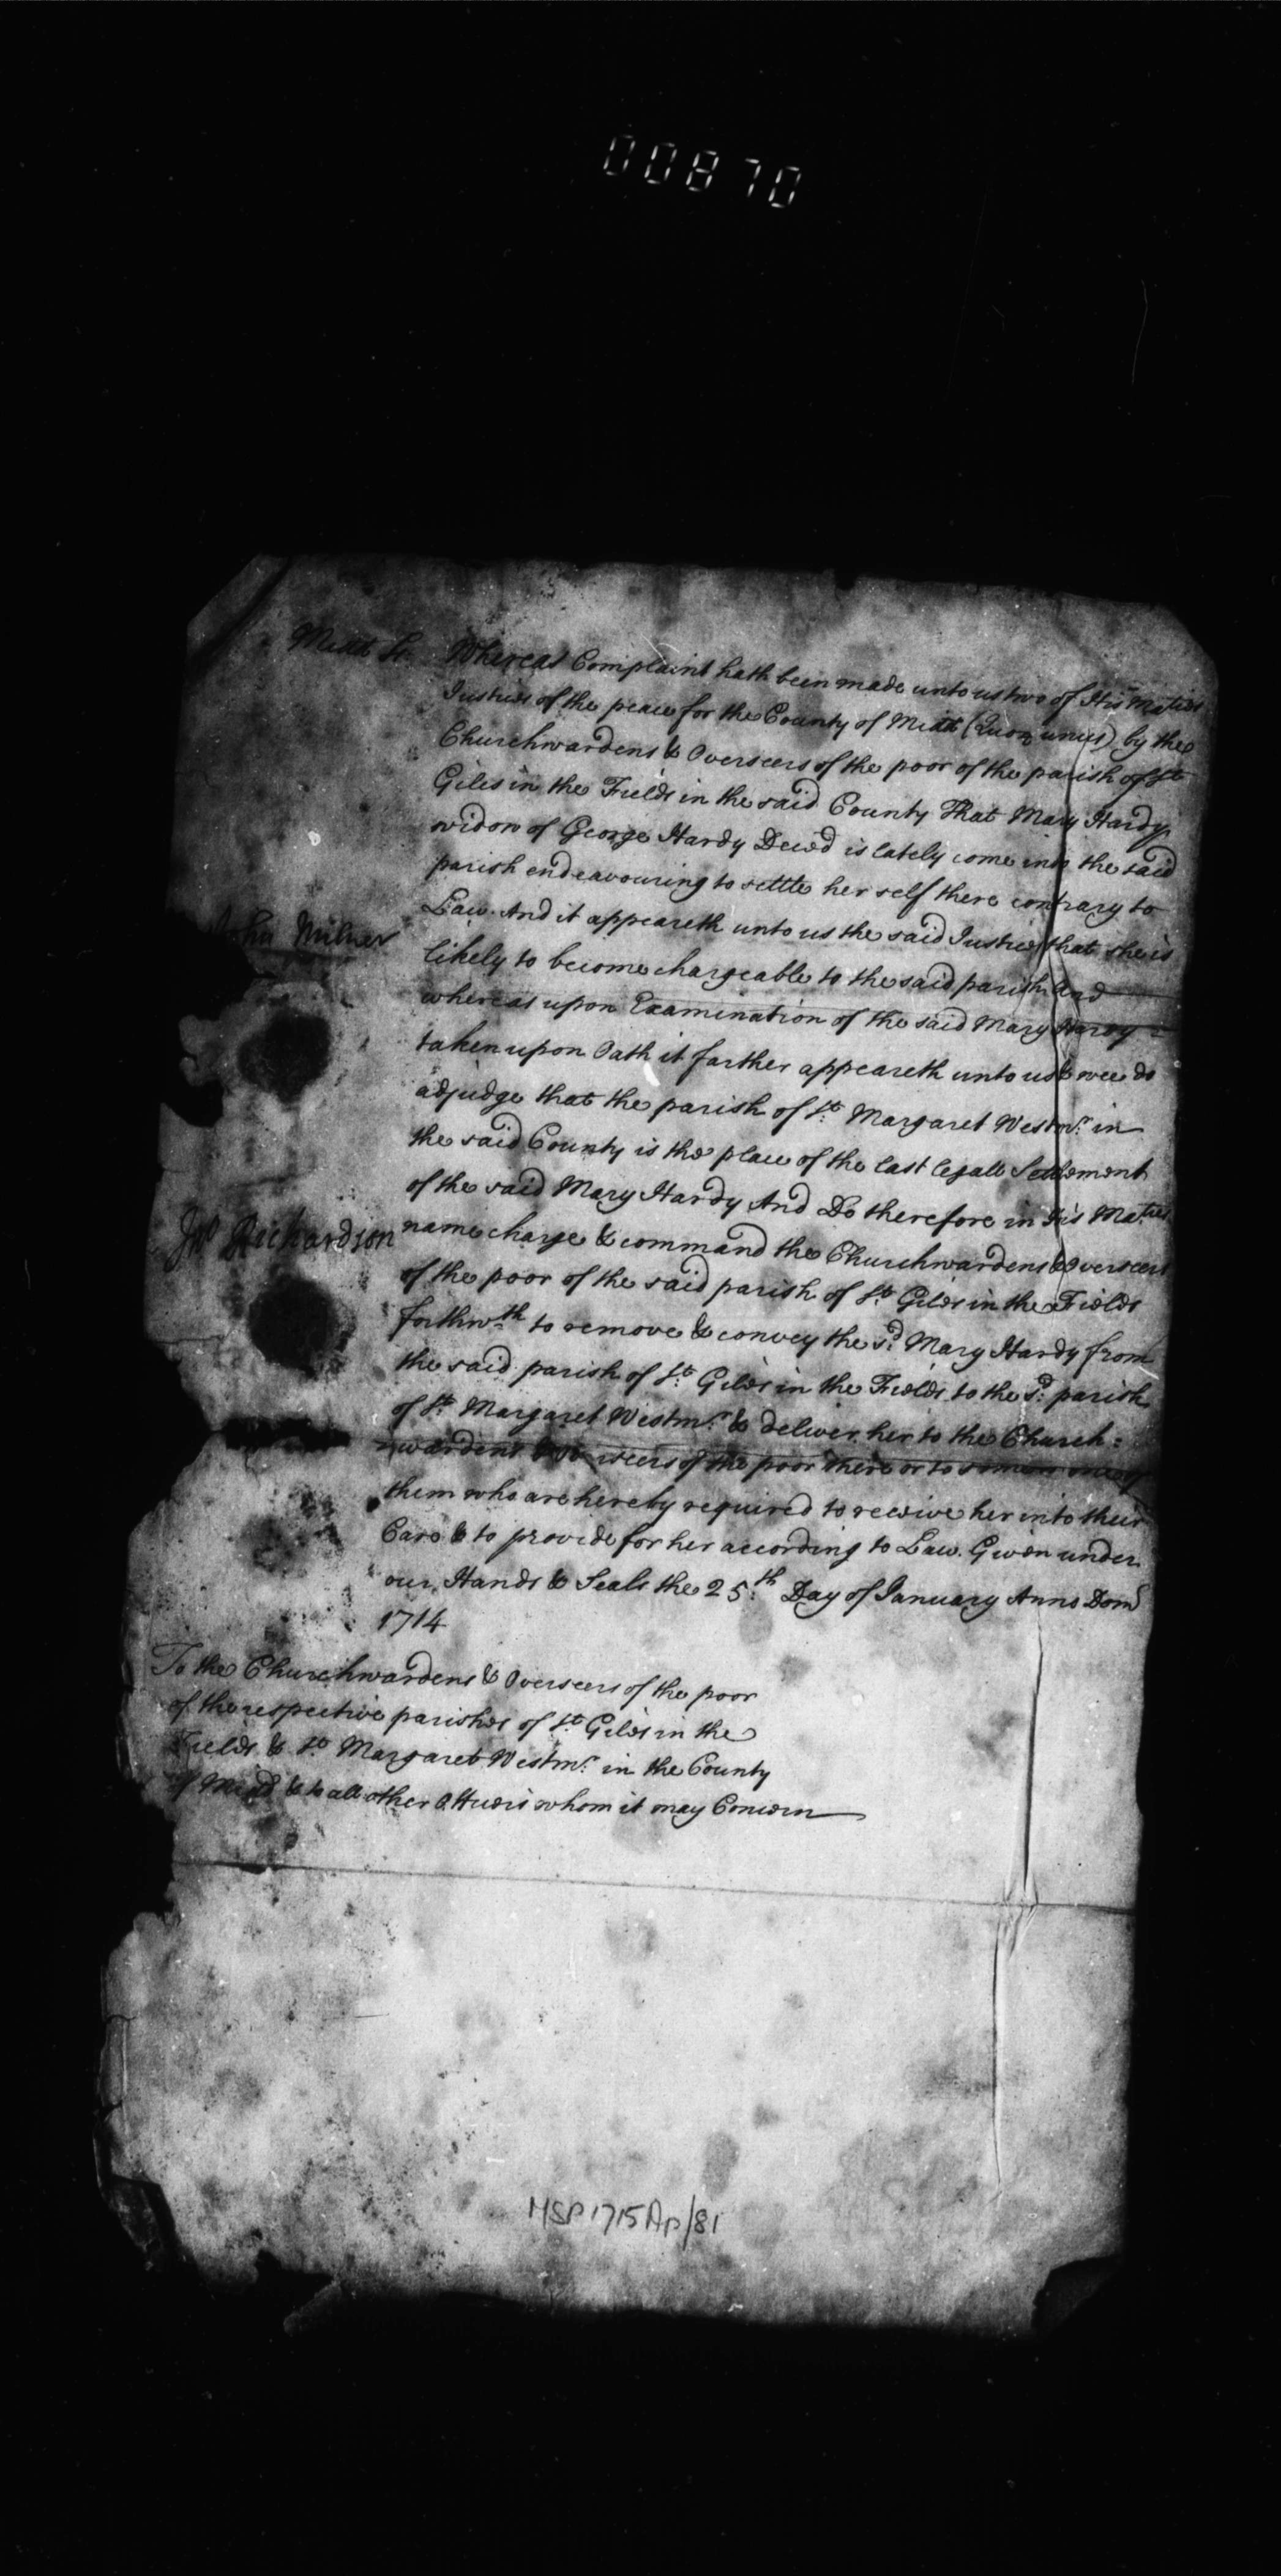 00870
Midd ss. Whereas Complaint hath been made unto us two of His Maties
Justices of the peace for the County of Midd (Quor unus) by the
Churchwardens & Overseers of the poor of the parish of St
Giles in the Fields in the said County That Mary Hardy
widow of George Hardy Deced is lately come into the said
parish endeavouring to settle her self there contrary to
Law. And it appeareth unto us the said Justices that she is
likely to become chargeable to the said parish And
whereas upon Examination of the said Mary Hardy
taken upon Oath it farther appeareth unto us & wee do
adjudge that the parish of St. Margaret Westmr. in
the said County is the place of the last legall Settlement
of the said Mary Hardy And Do therefore in His Maties
name charge & command the Churchwardens & Overseers
of the poor of the said parish of St. Giles in the Fields
forthwth to remove & convey the sd. Mary Hardy from
the said parish of St. Giles in the Fields to the sd. parish
of St. Margaret Westmr. & deliver her to the Church=
wardens & Overseers of the poor there or to some or one of
them who are hereby required to receive her into their
Care & to provide for her according to Law. Given under
our Hands & Seals the 25th. Day of January Anno Dom
1714
John Milner
Jno Richardson
To the Churchwardens & Overseers of the poor
of the respective parishes of St. Giles in the
Fields & St. Margaret Westmr. in the County
of Midd & to all other Officers whom it may Concern
MSP 1715 Ap/81